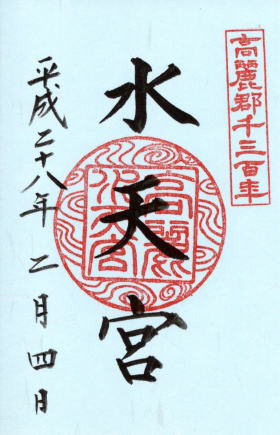 高麗郡千三百年
水天宮
高麗水天宮
平成二十八年二月四日